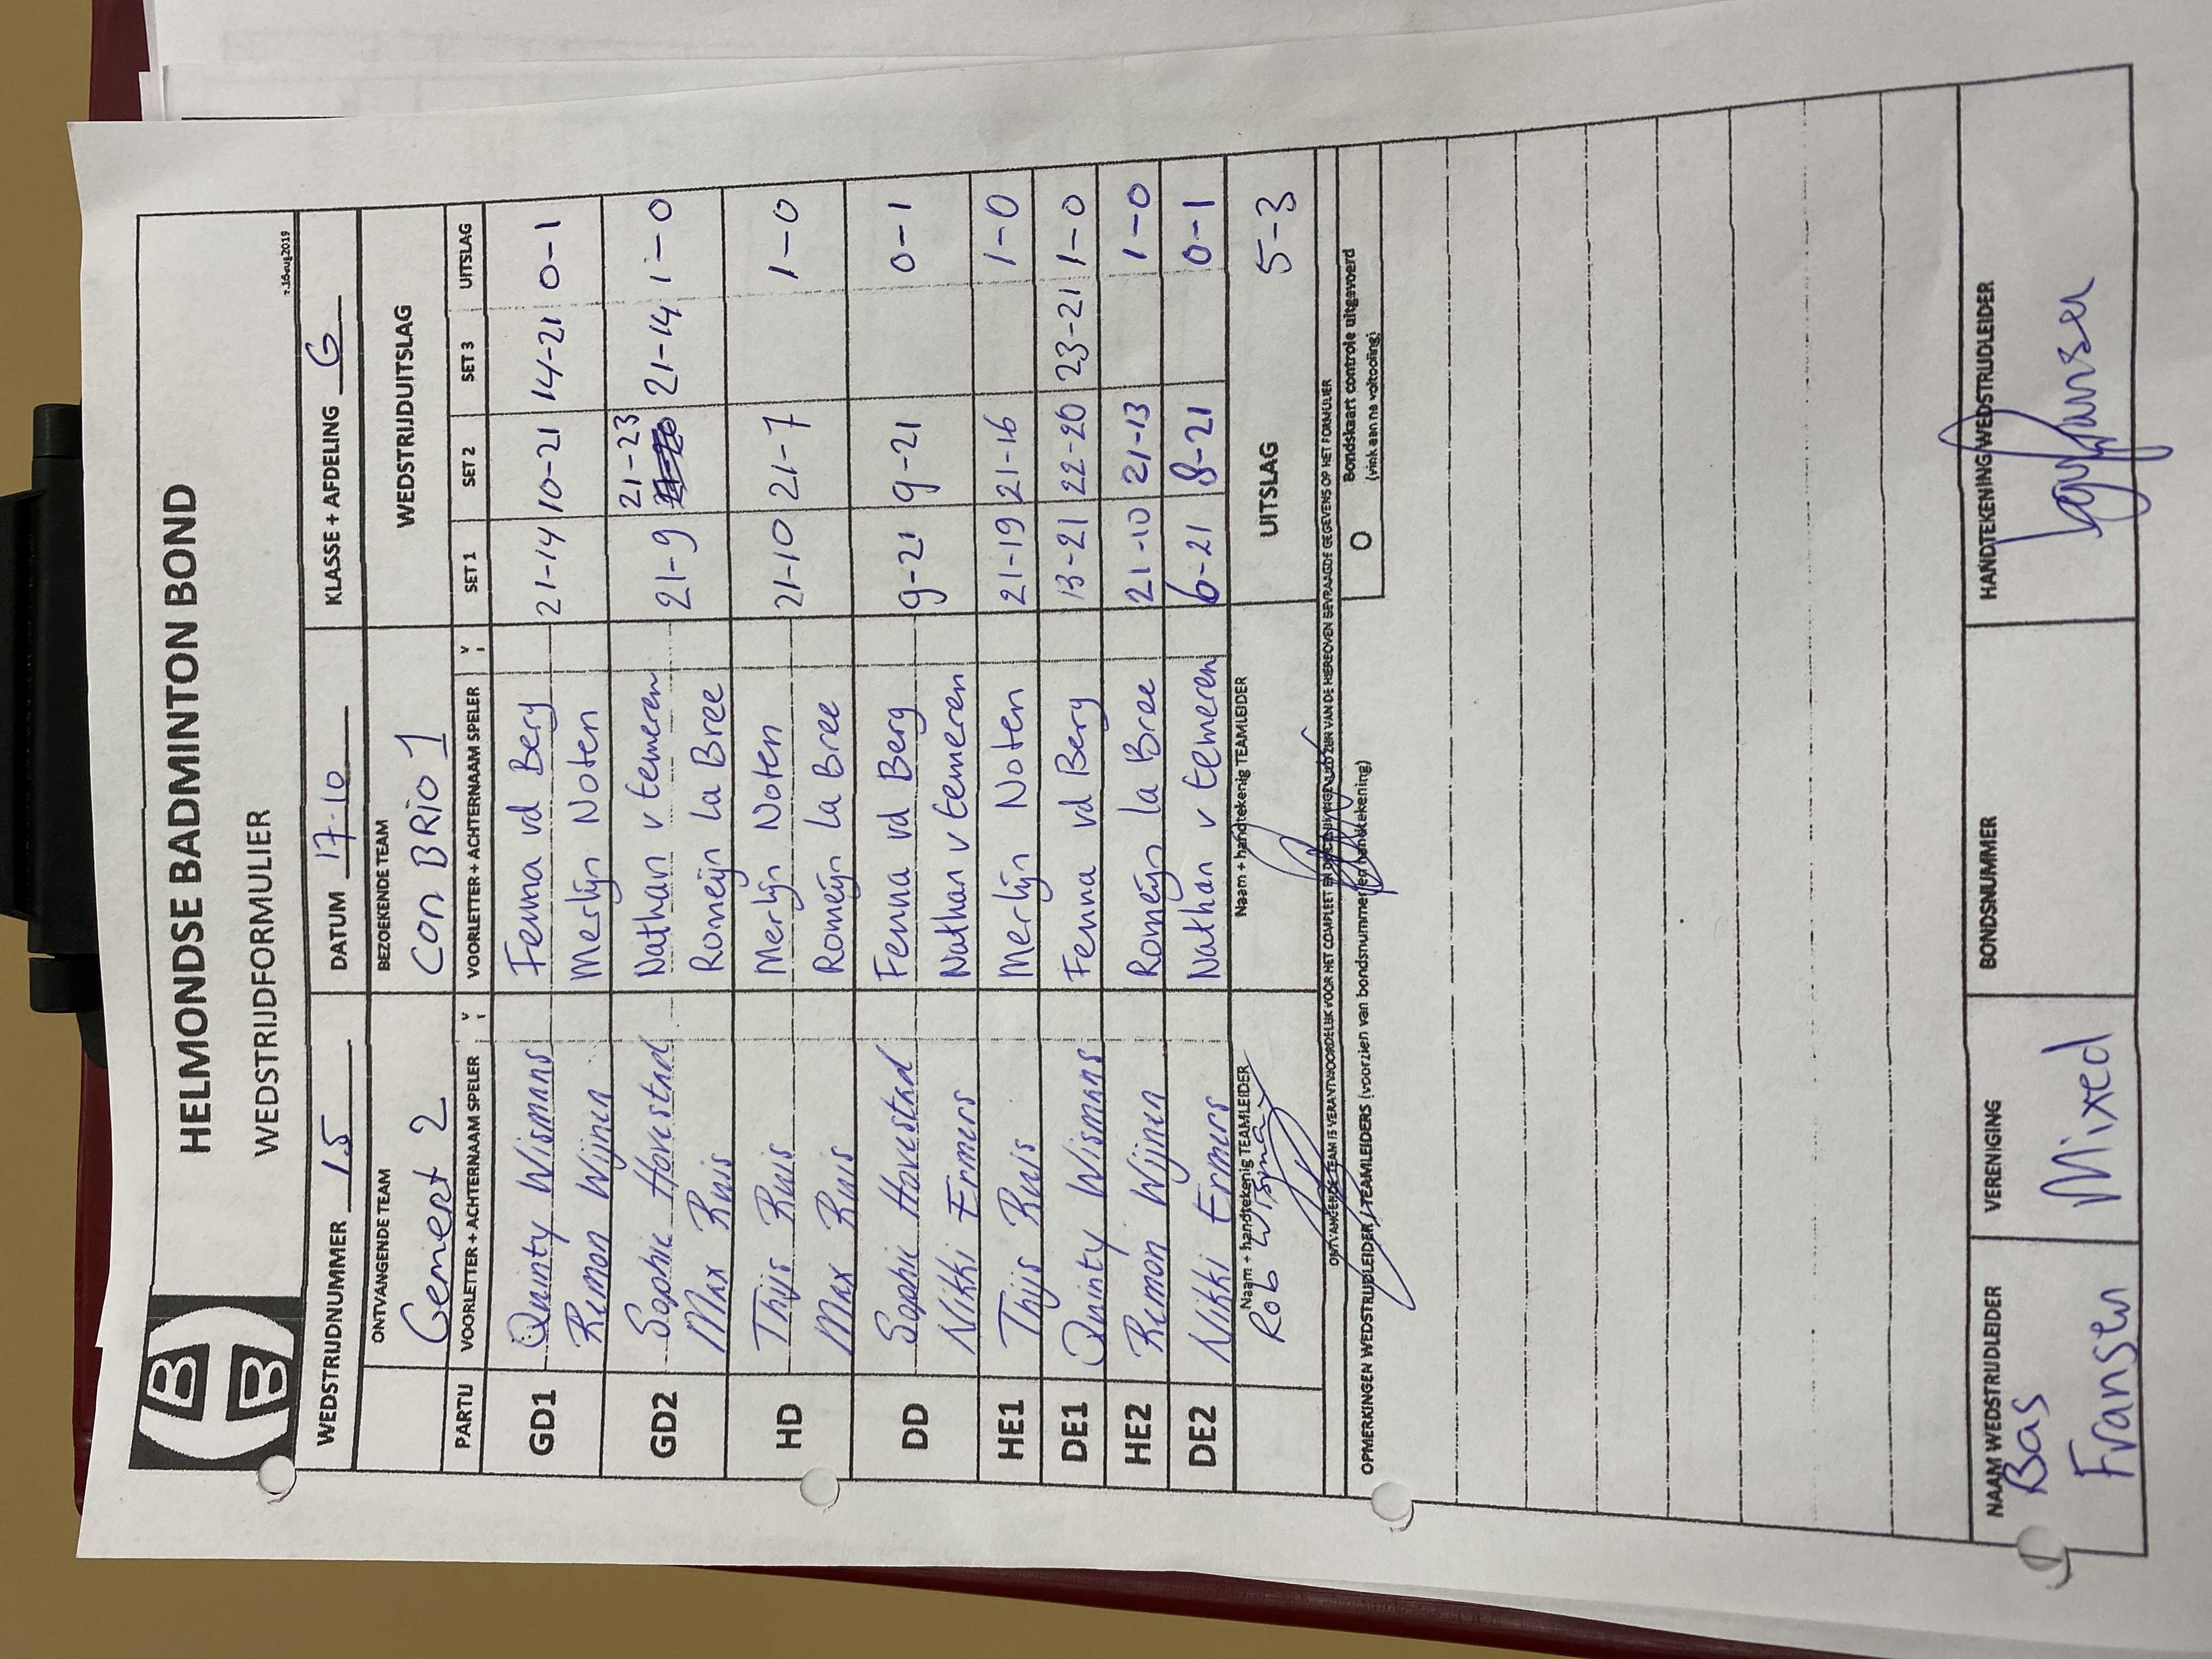 HELMONDSE BADMINTON BOND
WEDSTRIJDFORMULIER
v.16aug2019
WEDSTRIJDNUMMER 15 DATUM 17-10 KLASSE + AFDELING G
ONTVANGENDE TEAM BEZOEKENDE TEAM WEDSTRIJDUITSLAG
Gemert 2 Con BRio 1
PARTIJ VOORLETTER + ACHTERNAAM SPELER VOORLETTER + ACHTERNAAM SPELER SET 1 SET 2 SET 3 UITSLAG
GD1 Quinty Wismans Fenna vd Berg 21-14 10-21 14-21 0-1
Remon Wijnen Merlijn Noten
GD2 Sophie Havestad Nathan v temeren 21-9 21-23 21-14 1-0
Max Ruis Romeijn la Bree
HD Thijs Ruis Merlijn Noten 21-10 21-7 1-0
Max Ruis Romeijn la Bree
DD Sophie Havestad Fenna vd Berg 9-21 9-21 0-1
Nikki Ermers Nathan v temeren
HE1 Thijs Ruis Merlijn Noten 21-19 21-16 1-0
DE1 Quinty Wismans Fenna vd Berg 13-21 22-20 23-21 1-0
HE2 Remon Wijnen Romeijn la Bree 21-10 21-13 1-0
DE2 Nikki Ermers Nathan v temeren 6-21 8-21 0-1
Naam + handtekenig TEAMLEIDER Naam + handtekenig TEAMLEIDER UITSLAG 5-3
Rob
ONTVANGENDE TEAM IS VERANTWOORDELIJK VOOR HET COMPLEET EN ZIJN VAN DE HIERBOVEN GEVRAAGDE GEGEVENS OP HET FORMULIER
OPMERKINGEN WEDSTRIJDLEIDER / TEAMLEIDERS (voorzien van bondsnummer en handtekening)
O Bondskaart controle uitgevoerd
(vink aan na voltooiing)
NAAM WEDSTRIJDLEIDER VERENIGING BONDSNUMMER HANDTEKENING WEDSTRIJDLEIDER
Bas
Fransen Mixed